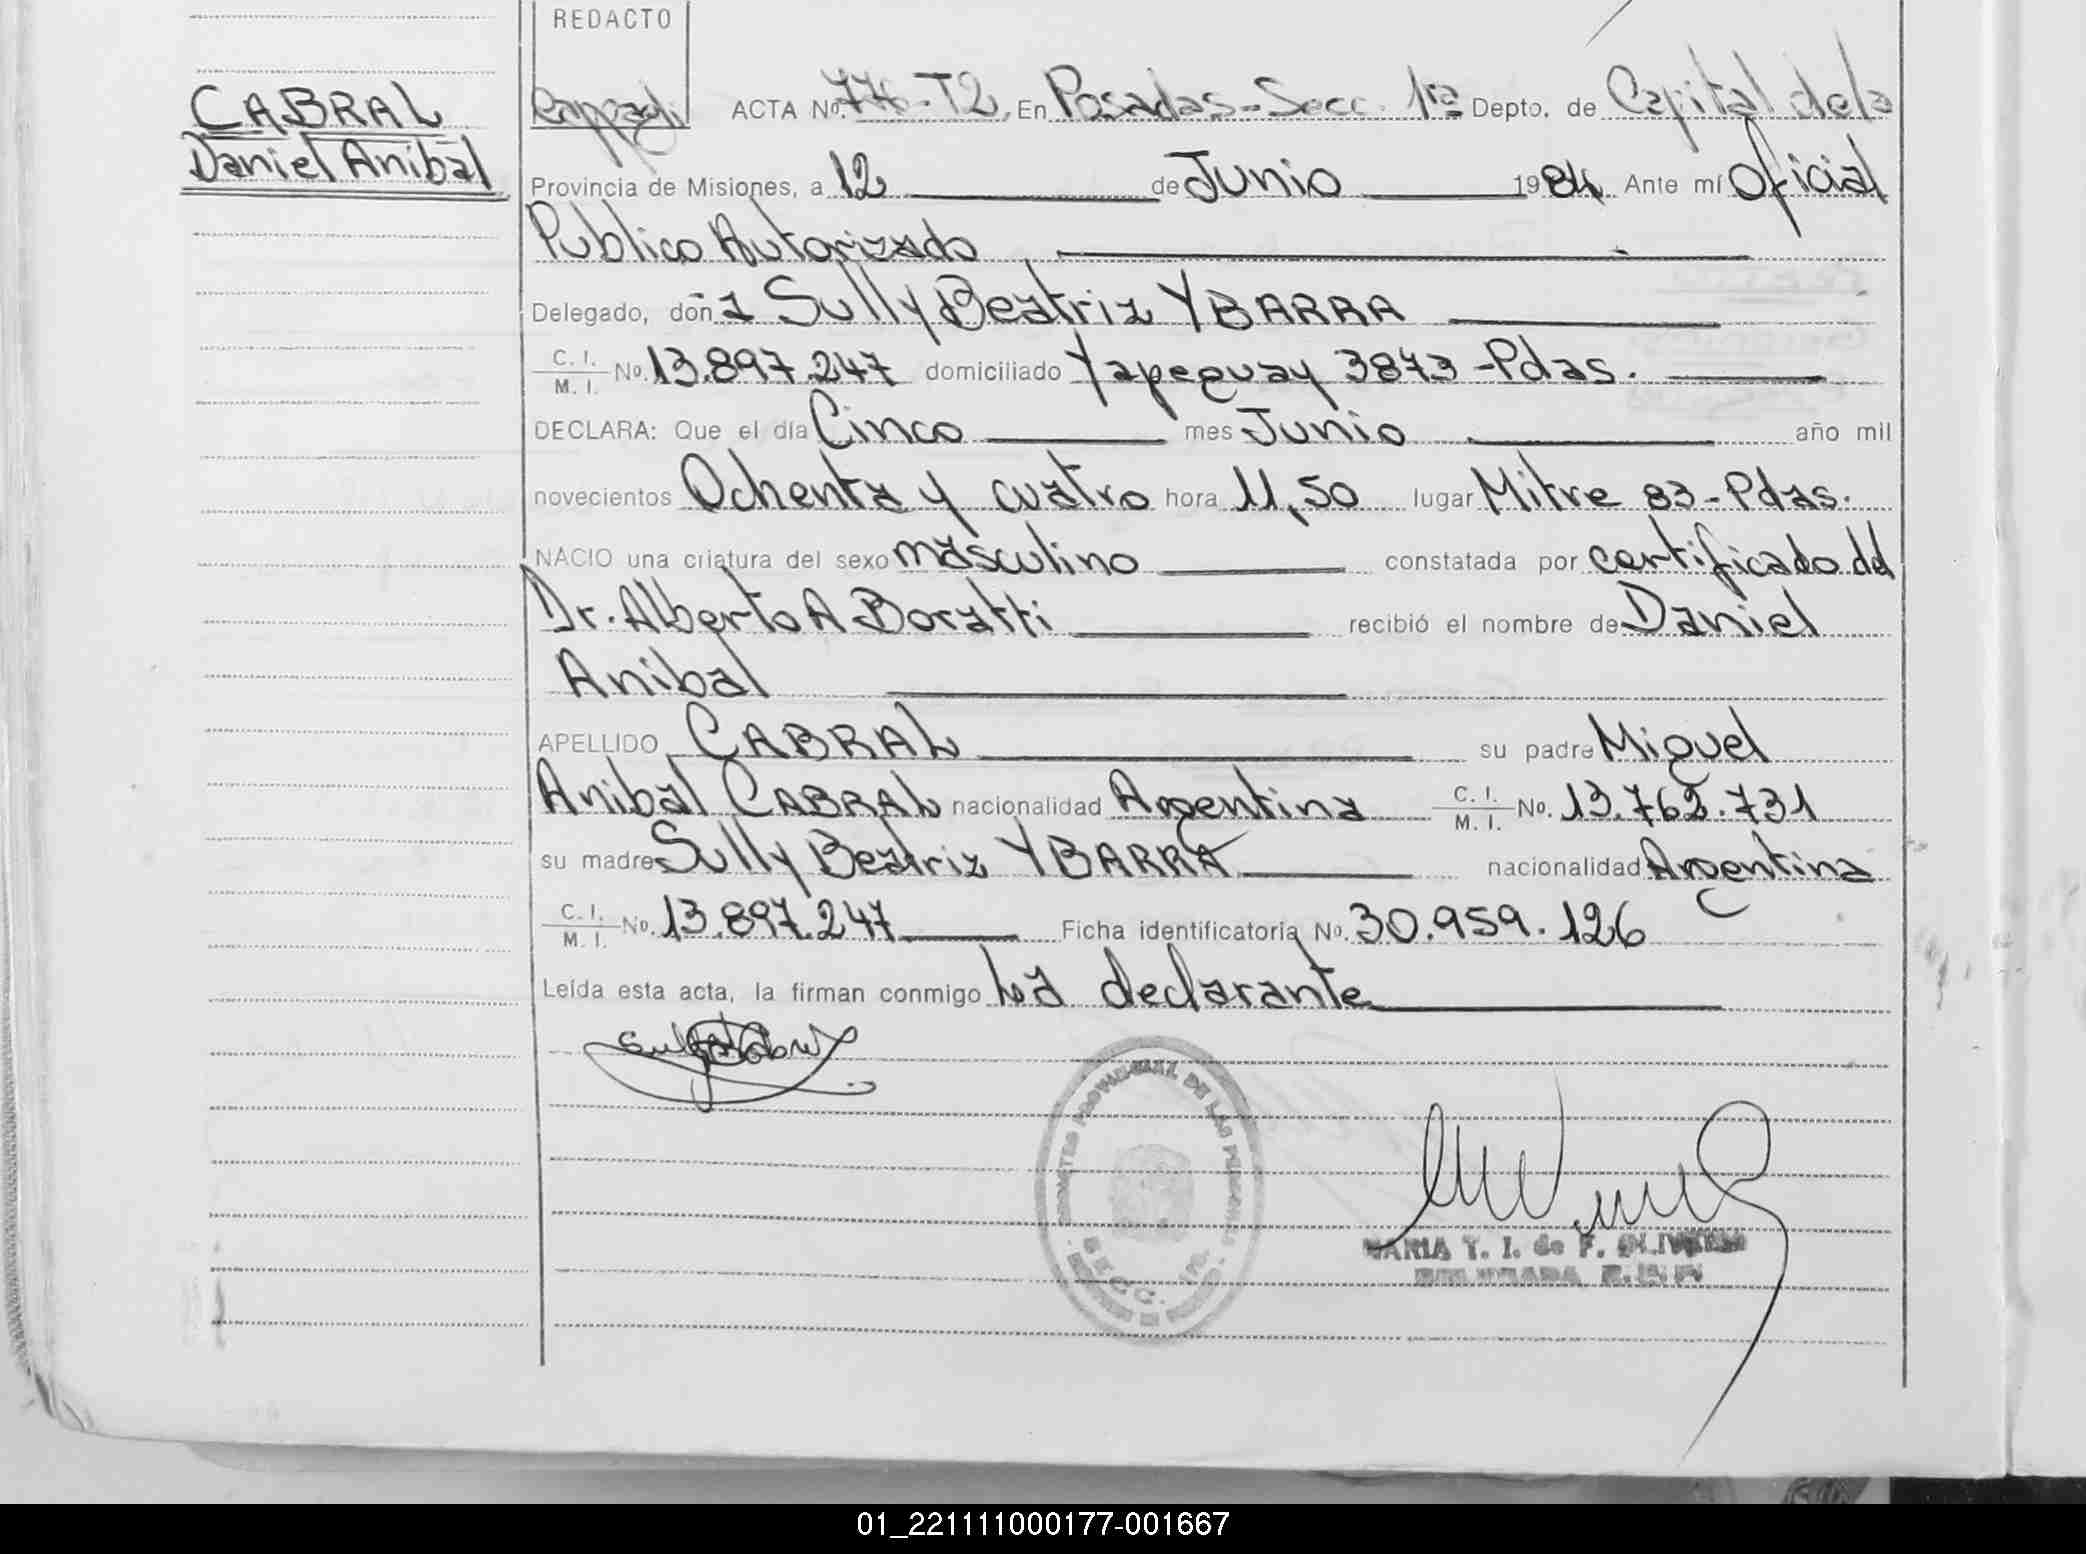 CABRAL
Daniel Anibal
REDACTO
ACTA Nº. 776-T2. En Posadas-Secc. 1ra Depto. de Capital de la
Provincia de Misiones, a 12 de Junio 1984 Ante mí Oficial
Publico Autorizado
Delegado, doña Sully Beatriz YBARRA
C. I. / M. I. Nº. 13.897.247 domiciliado Yapeguay 3873 -Pdas.
DECLARA: Que el día Cinco mes Junio año mil
novecientos Ochenta y cuatro hora 11,50 lugar Mitre 83-Pdas.
NACIO una criatura del sexo masculino constatada por certificado del
Dr. Alberto A Boratti recibió el nombre de Daniel
Anibal
APELLIDO CABRAL su padre Miguel
Anibal CABRAL nacionalidad Argentina C. I. / M. I. Nº. 13.762.731
su madre Sully Beatriz YBARRA nacionalidad Argentina
C. I. / M. I. Nº. 13.897.247 Ficha identificatoria Nº. 30.959.126
Leída esta acta, la firman conmigo La declarante
PROVINCIAL DE LAS PERSONAS
SECC. 1ra.
MARIA T. I. de F. OLIVEIRA
01_221111000177-001667